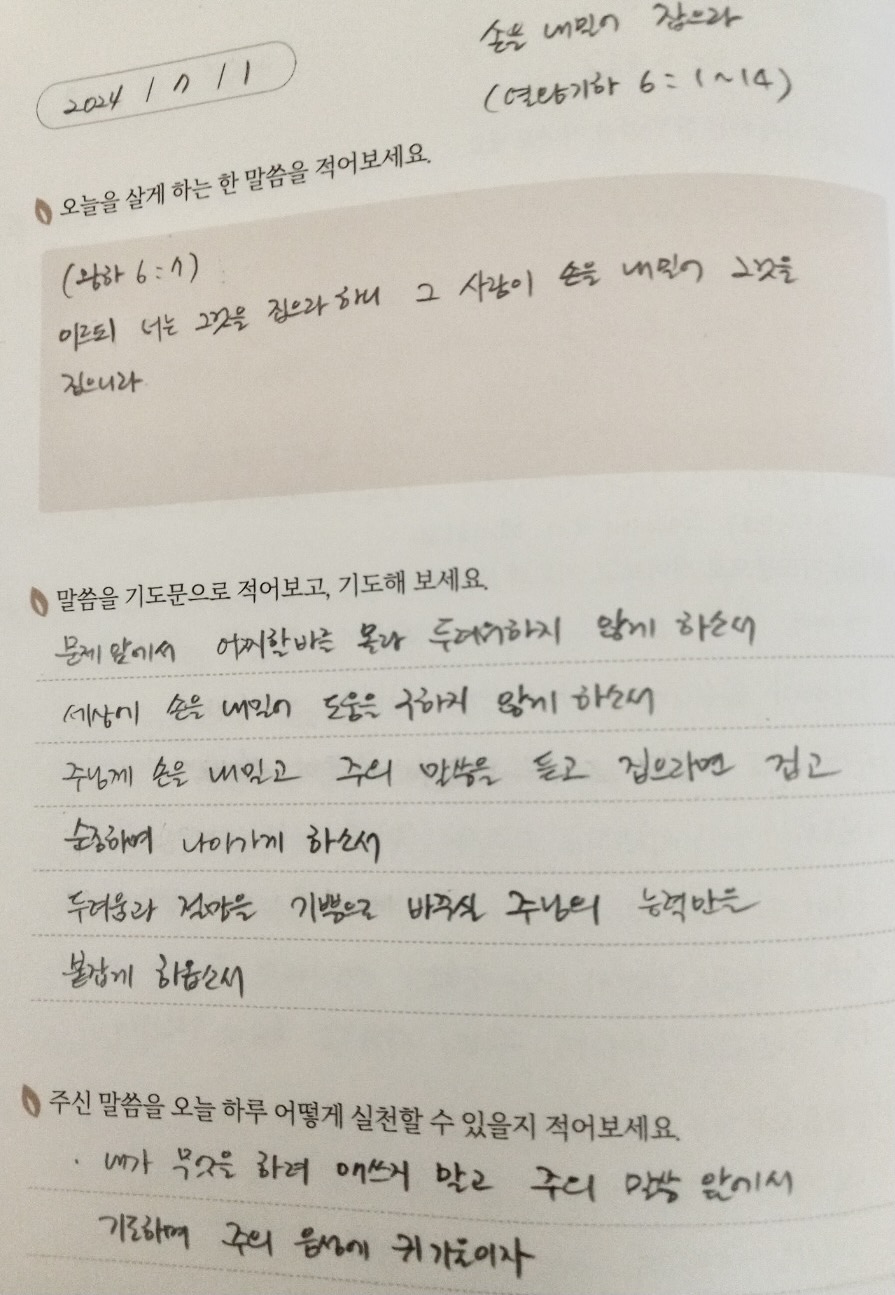 손을 내밀어 잡으라
2024 / 7 / 1
(열왕기하 6:1~14)
오늘을 살게 하는 한 말씀을 적어보세요.
(왕하 6:7)
이르되 너는 그것을 집으라 하니 그 사람이 손을 내밀어 그것을
집으니라
말씀을 기도문으로 적어보고, 기도해 보세요.
문제 앞에서 어찌할바를 몰라 두려워하지 않게 하소서
세상에 손을 내밀어 도움을 구하지 않게 하소서
주님께 손을 내밀고 주의 말씀을 듣고 집으라면 집고
순종하며 나아가게 하소서
두려움과 절망을 기쁨으로 바꾸실 주님의 능력만을
붙잡게 하옵소서
주신 말씀을 오늘 하루 어떻게 실천할 수 있을지 적어보세요.
· 내가 무엇을 하려 애쓰지 말고 주의 말씀 앞에서
기도하며 주의 음성에 귀 기울이자